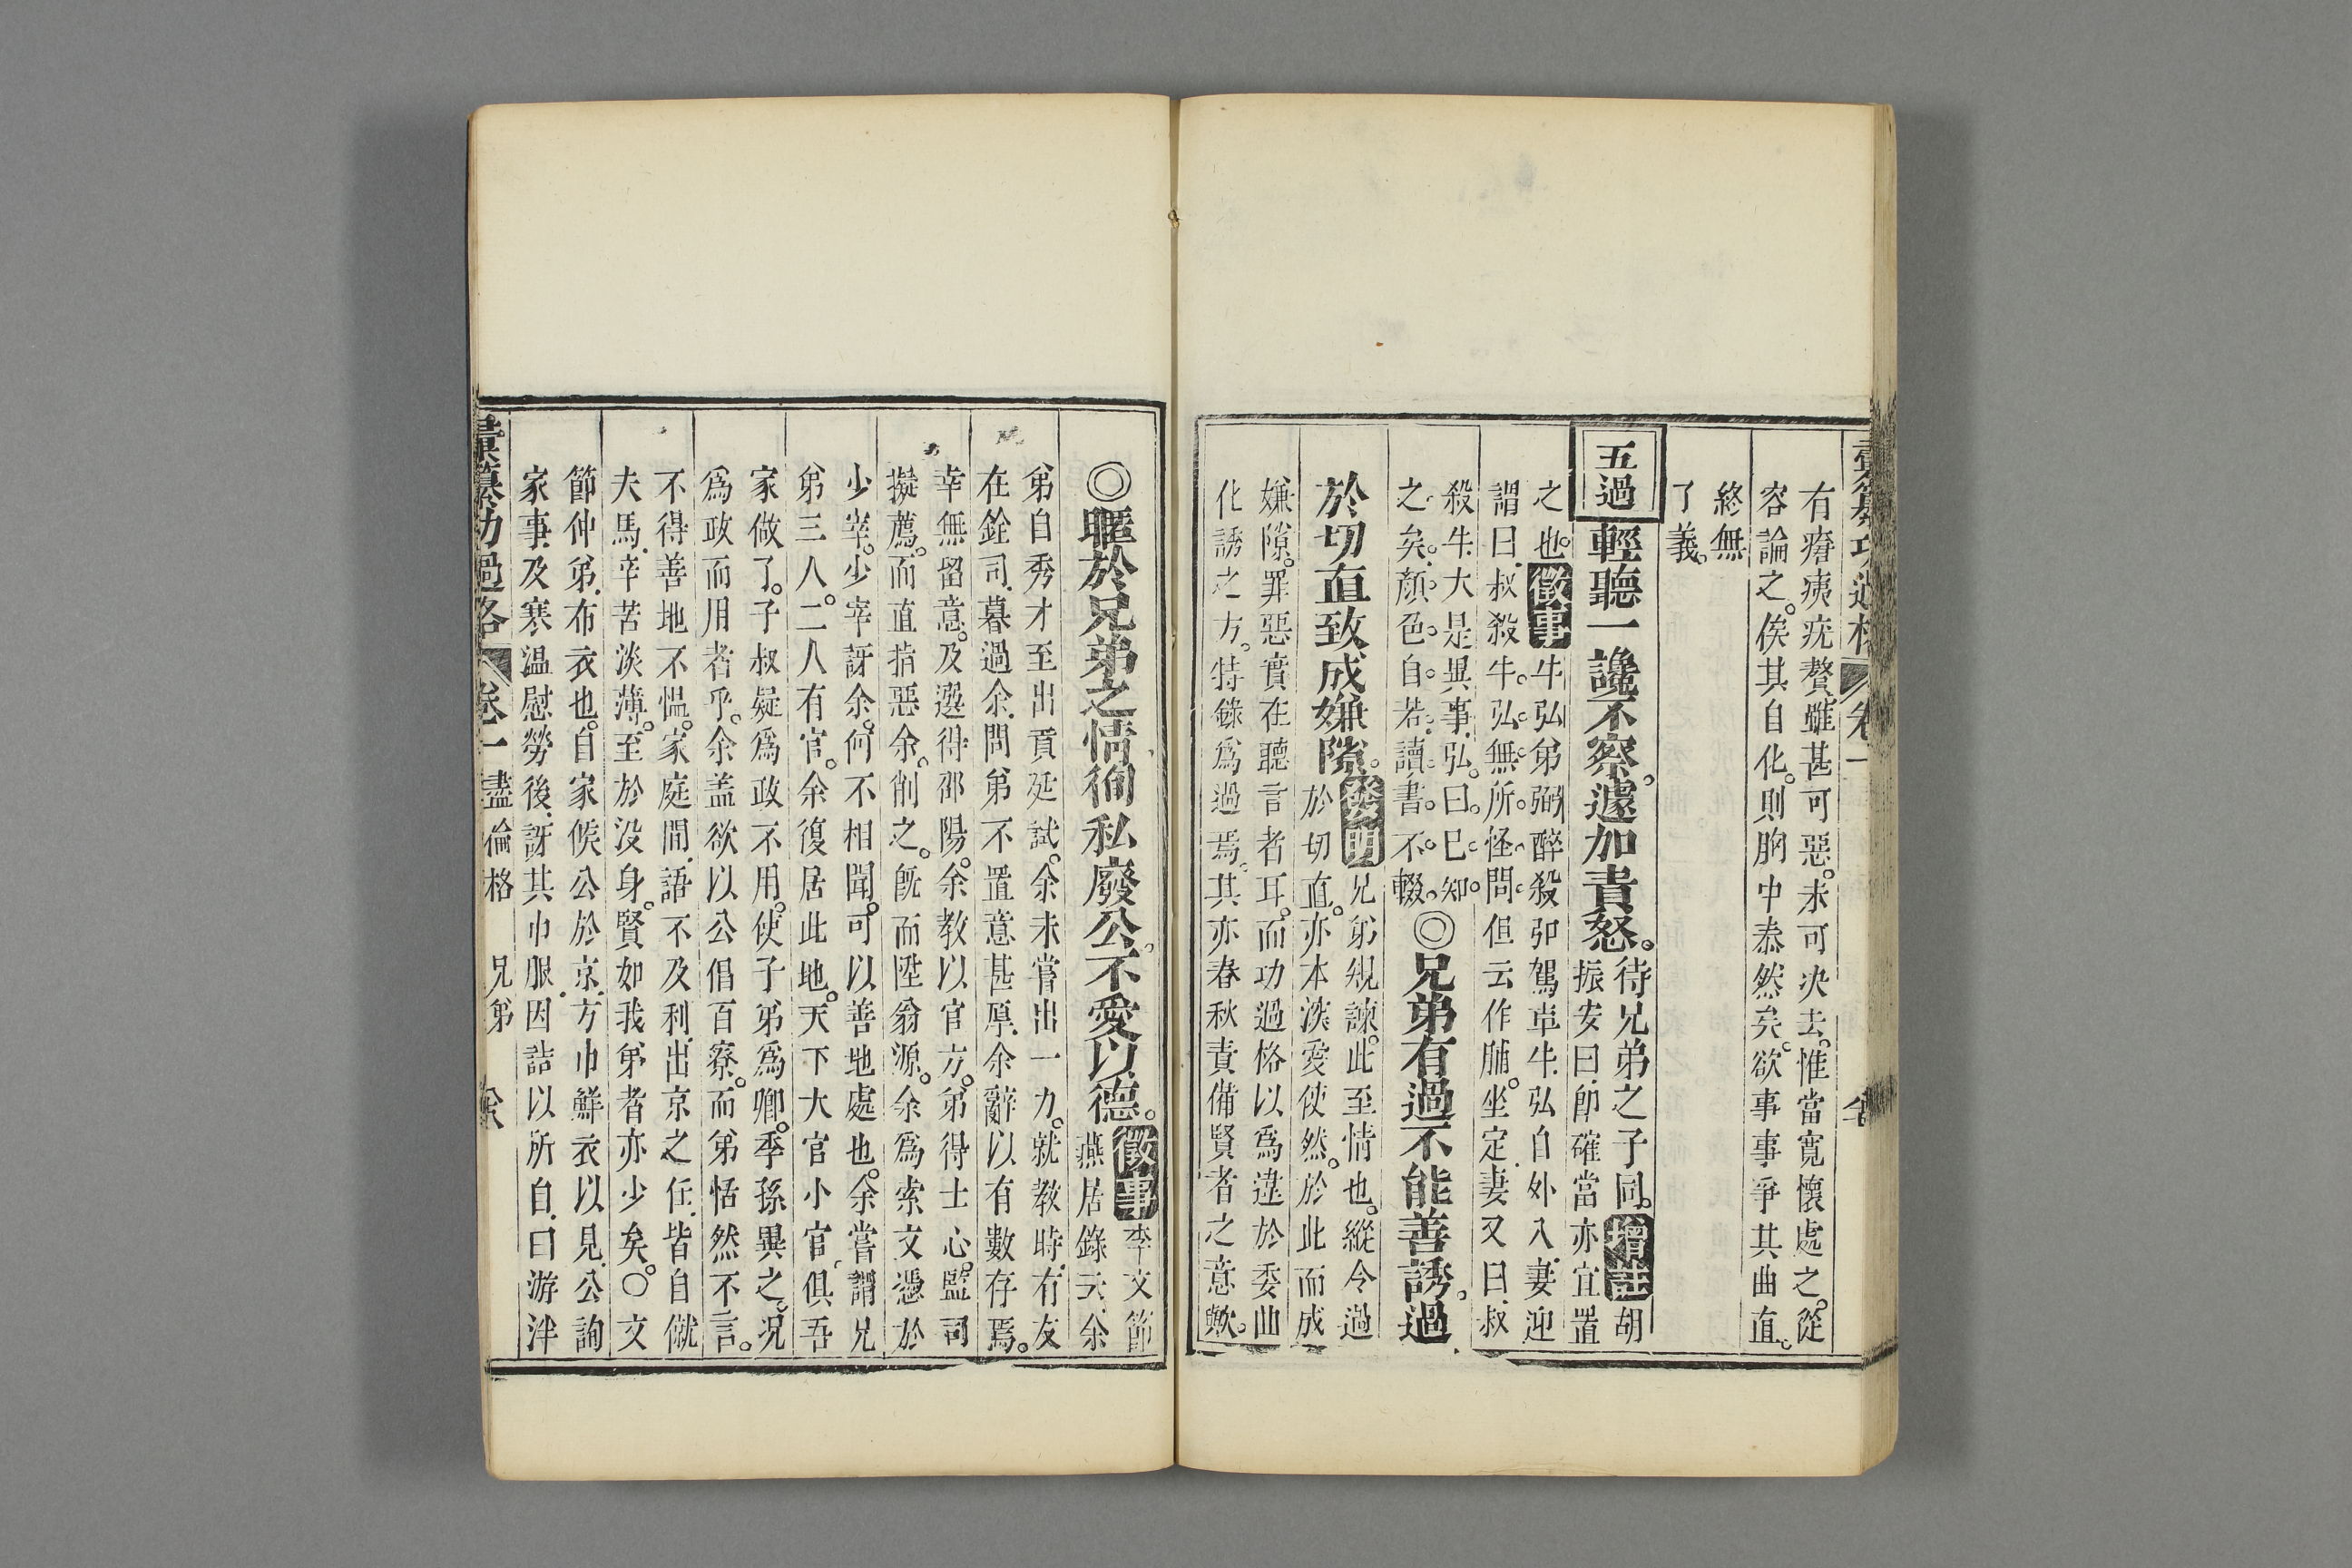 彙纂功過格 卷一
有瘠痍疣贅雖甚可惡未可决去惟當寬懷處之從
容論之俟其自化則胸中泰然矣欲事事爭其曲直
終無
了義
五過
輕聽一讒不察遽加責怒
待兄弟之子同 增註 胡
振安曰卽確當亦宜置
之也 徵事 牛弘弟弼醉殺弘駕車牛弘自外入妻迎
謂曰叔殺牛弘無所怪問但云作脯坐定妻又曰叔
殺牛大是異事弘曰已知
之矣顏色自若讀書不輟
◎兄弟有過不能善誘過
於切直致成嫌隙
發明 兄弟規諫此至情也縱令過
於切直亦本深愛使然於此而成
嫌隙罪惡實在聽言者耳而功過格以爲違於委曲
化誘之方特錄爲過焉其亦春秋責備賢者之意歟
◎暱於兄弟之情徇私廢公不愛以德
徵事 李文節
燕居錄云余
弟自秀才至出貢廷試余未嘗出一力就教時有友
在銓司暮過余問弟不置意甚厚余辭以有數存焉
幸無留意及選得邵陽余教以官方弟得士心監司
擬薦而直指惡余削之旣而陞翁源余爲索文憑於
少宰少宰訝余何不相聞可以善地處也余嘗謂兄
弟三人二人有官余復居此地天下大官小官俱吾
家做了子叔疑爲政不用使子弟爲卿季孫異之况
爲政而用者乎余盖欲以公倡百寮而弟恬然不言
不得善地不慍家庭間語不及利出京之任皆自僦
夫馬辛苦淡薄至於没身賢如我弟者亦少矣○文
節仲弟布衣也自家候公於京方巾鮮衣以見公詢
家事及寒温慰勞後訝其巾服因詰以所自曰游泮
彙纂功過格 卷一 盡倫格 兄弟